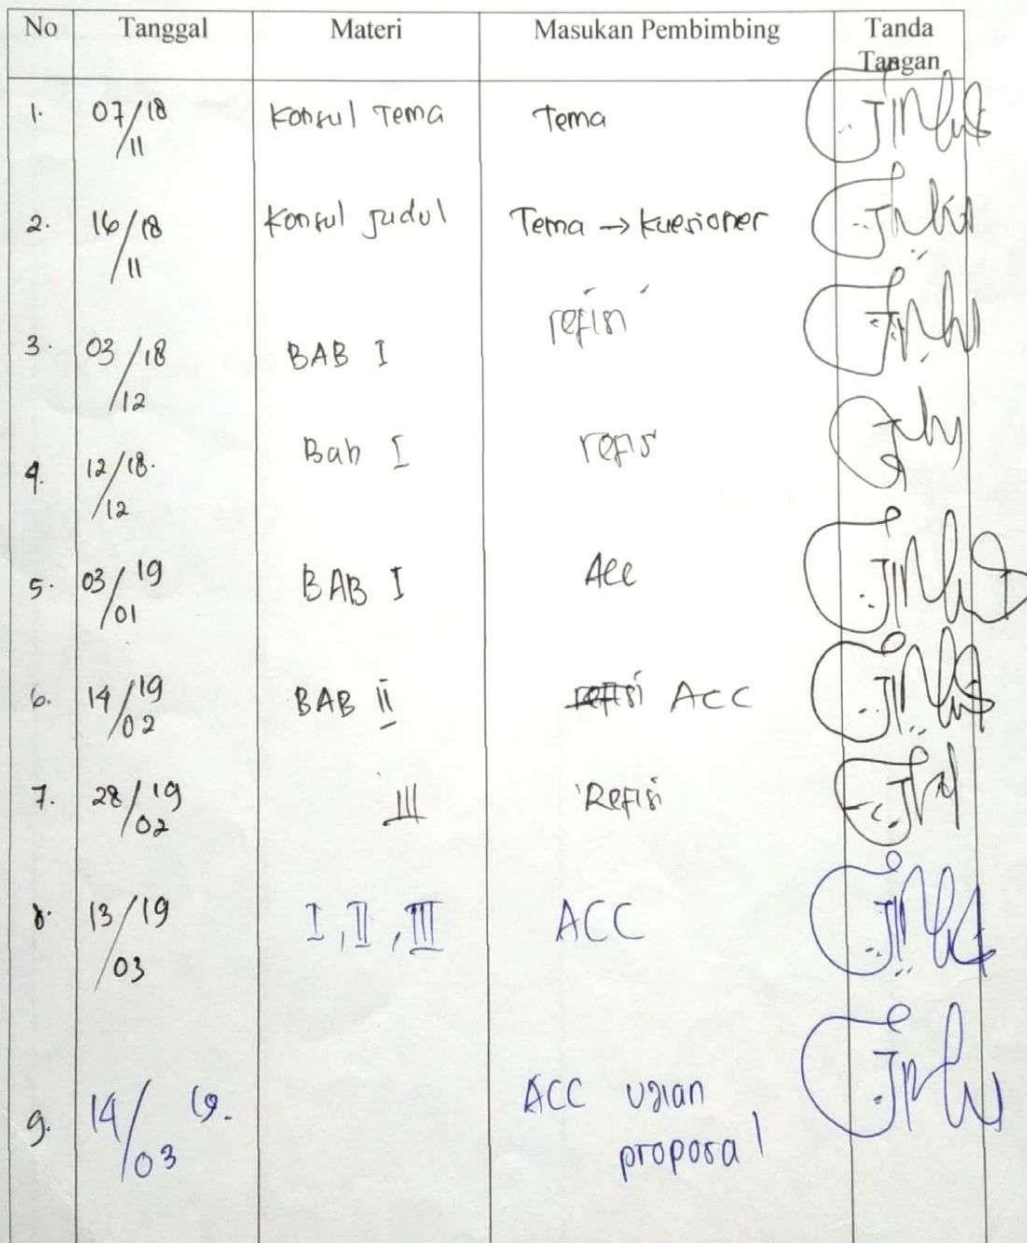 No Tanggal Materi Masukan Pembimbing Tanda Tangan
1. 07/18 /11 Konsul Tema Tema
2. 16/18 /11 Konsul Judul Tema → Kuesioner
3. 03/18 /12 BAB I refisi
4. 12/18. /12 Bab I refisi
5. 03/19 /01 BAB I Acc
6. 14/19 /02 BAB II refisi ACC
7. 28/19 /02 III Refisi
8. 13/19 /03 I, II, III ACC
9. 14/19. /03 ACC Ujian
proposal